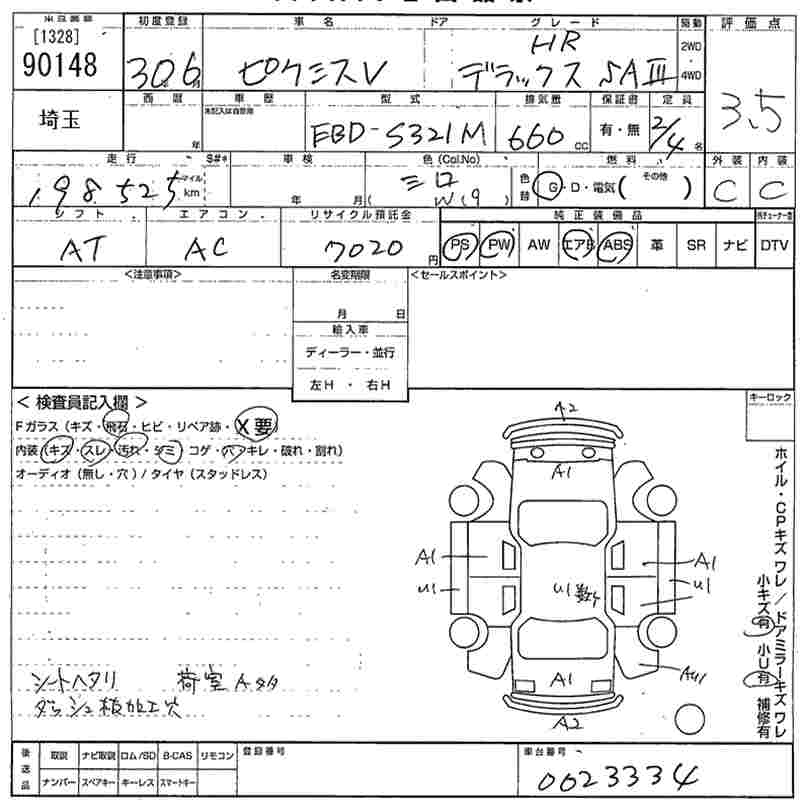 初度登録 車名 ドア グレード 駆動 評価点
[1328]
90148
30 6 ピクシスV HR デラックス SAⅢ 2WD 4WD 3.5
埼玉 西暦 年 車歴 型式 排気量 保証書 定員
EBD-S321M 660 cc 有・無 2/4 名
走行 S#* 車検 色(Col.No) 燃料 外装 内装
198525 マイル km 年 月 シロ W19 色替 G・D・電気( その他 ) C C
シフト エアコン リサイクル預託金 純正装備品
AT AC 7020 円 PS PW AW エアB ABS 革 SR ナビ DTV
<注意事項> 名変期限 <セールスポイント>
月 日
輸入車
ディーラー・並行
左H ・ 右H
< 検査員記入欄 > キーロック
Fガラス(キズ・飛石・ヒビ・リペア跡・X要)
内装(キズ・スレ・汚れ・シミ)コゲ・穴・キレ・破れ・割れ)
オーディオ(無し・穴)/タイヤ(スタッドレス)
A2
A1
A1 A1
U1 U1 U1
A1 AU1
A2
ホイル・CPキズ ワレ/ドアミラーキズ ワレ
小キズ有 小U有 補修有
シートヘタリ 荷室Aタタ
ダッシュ板加工穴
後送品 取説 ナビ取説 ロム/SD B-CAS リモコン 登録番号 車台番号
ナンバー スペアキー キーレス スマートキー 0023334